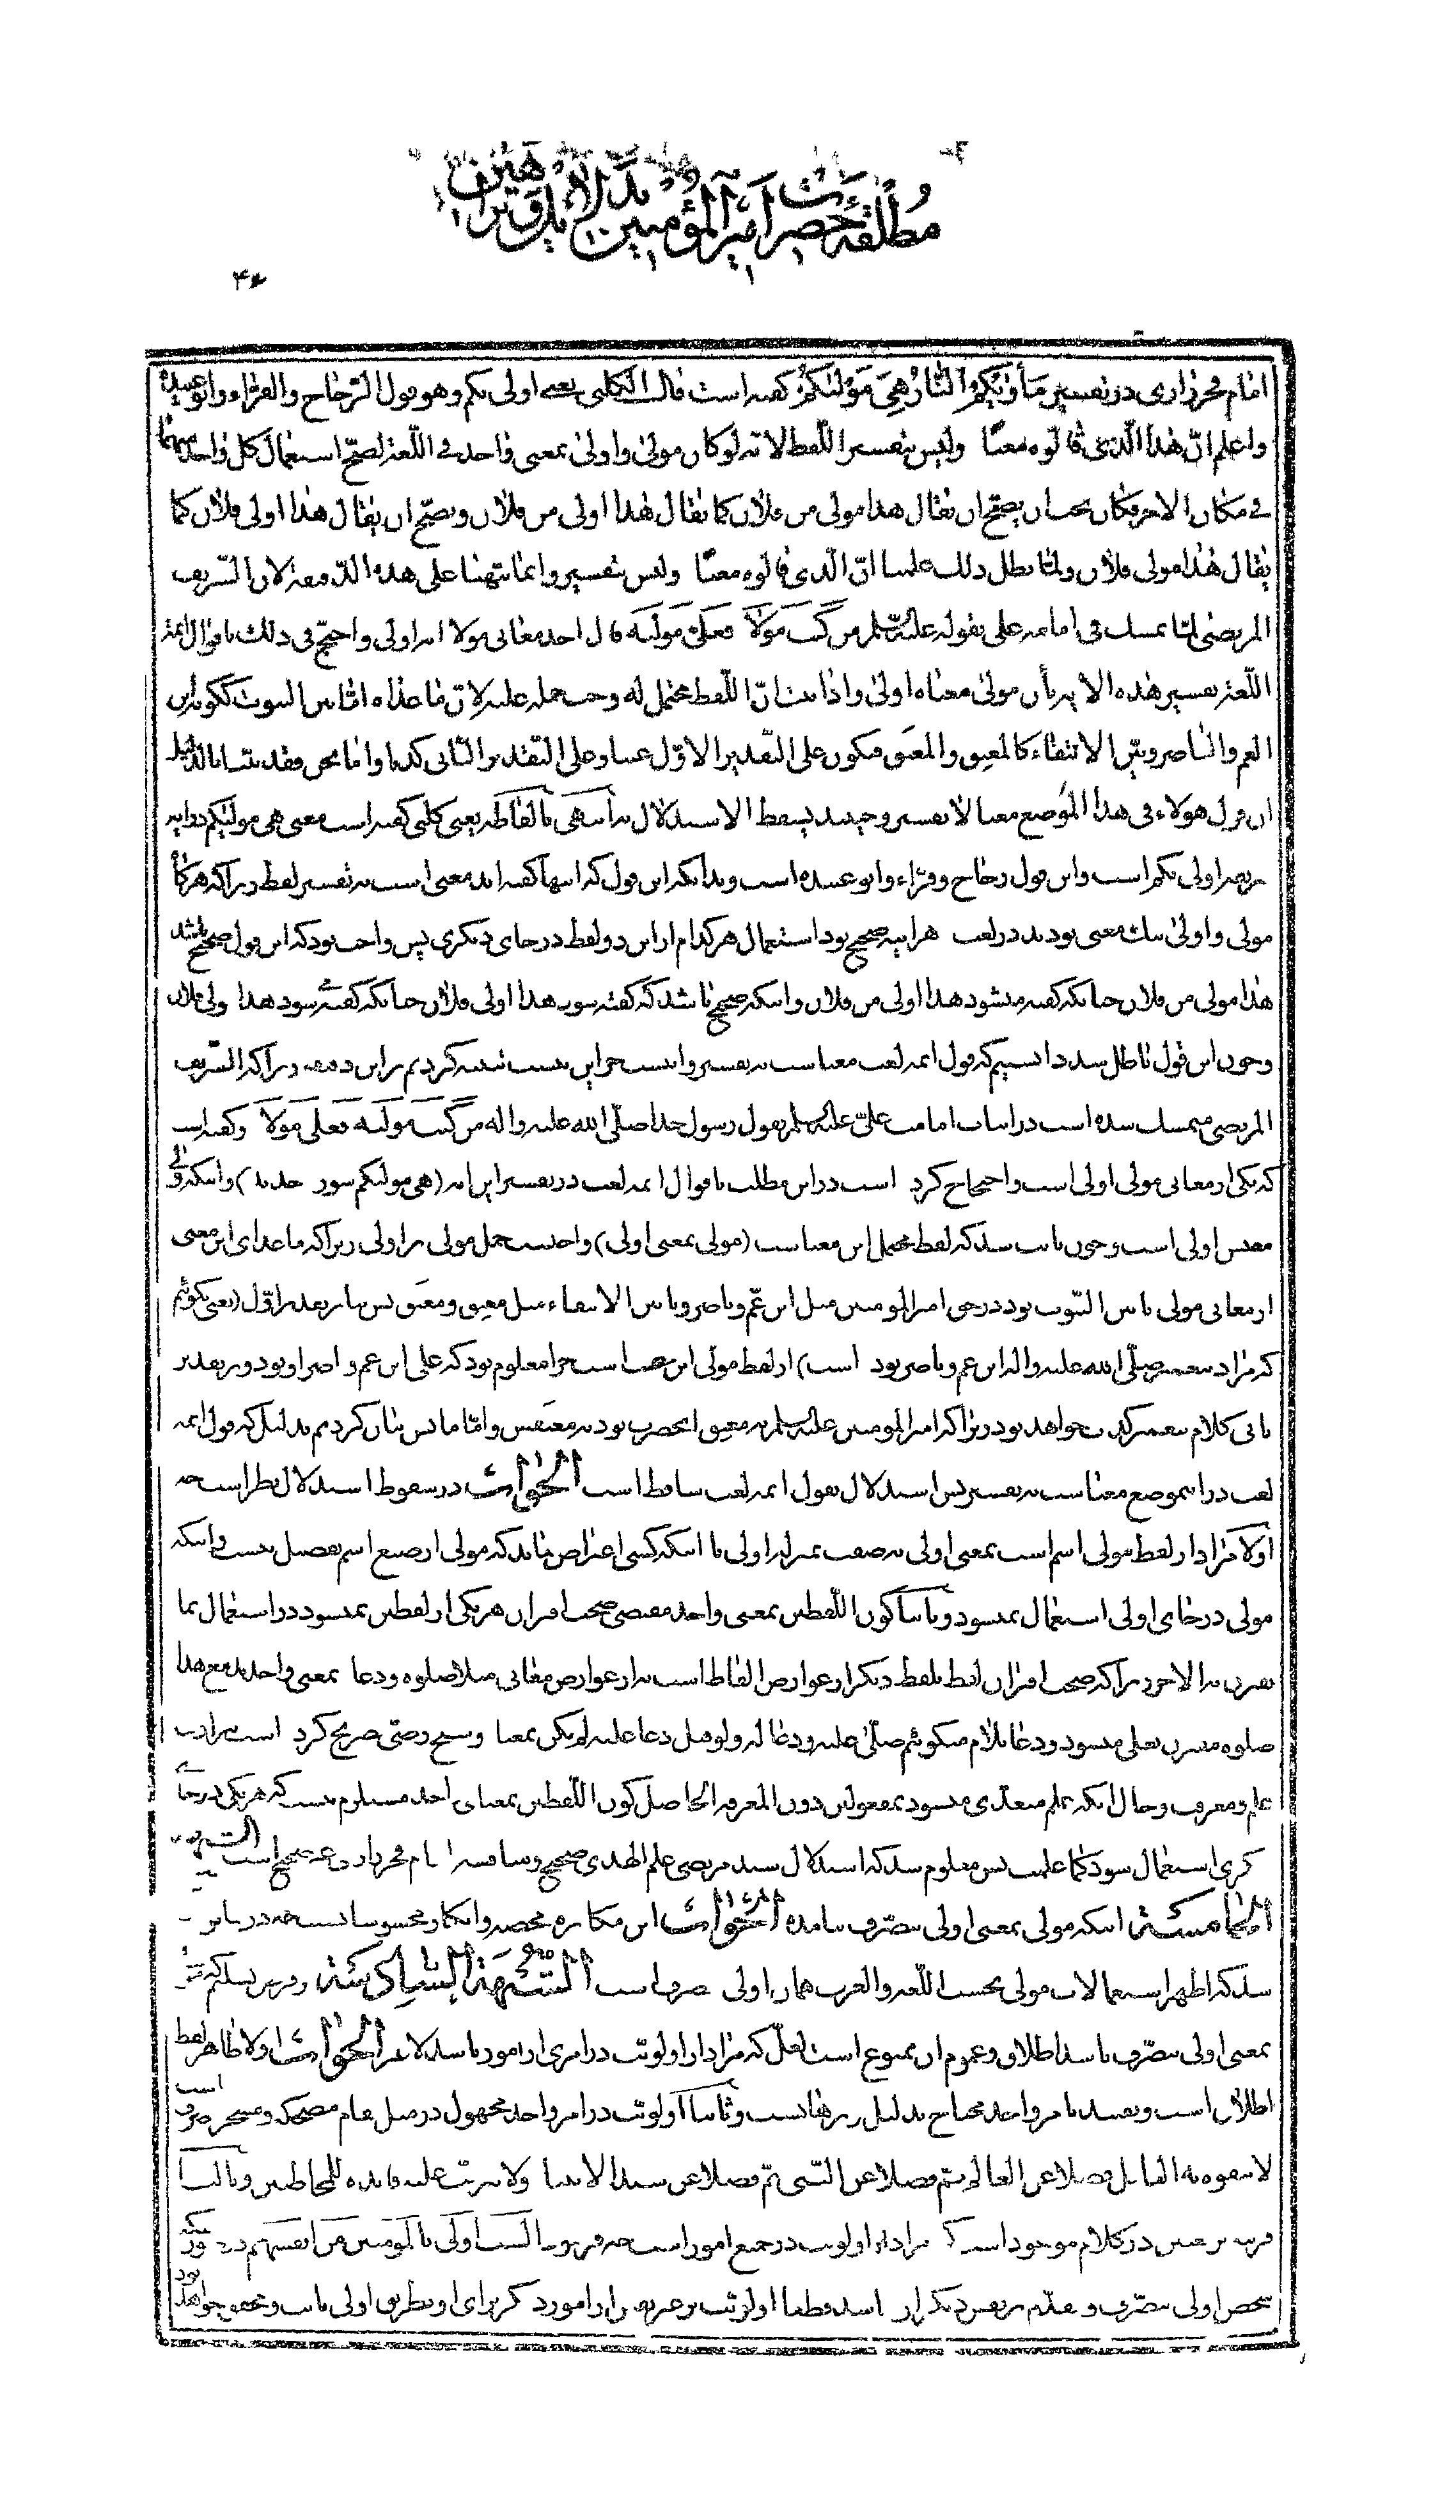 مطلقه حضرت امیر المؤمنین بدلائل و براهین
۴۶
امام فخر رازی در تفسیر مَأْوٰیکُمُ النّارُ هِیَ مَوْلٰیکُمْ گفته است قال الکلبی یعنی اولی بکم وهو قول الزجاج والفرّاء وابو عبیدة
واعلم انّ هذا الّذی قالوه معنًا ولیس بتفسیر اللّفظ لانّه لو کان مولی واولی بمعنی واحد فی اللّغة لصحّ استعمال کل واحد منهما
فی مکان الاخر فکان یجب ان یصحّ ان یقال هذا مولی من فلان کما یقال هذا اولی من فلان ویصحّ ان یقال هذا اولی فلان کما
یقال هذا مولی فلان ولمّا بطل ذلک علمنا انّ الّذی قالوه معنًا ولیس بتفسیر وانما نبّهنا علی هذه الدّقیقة لان الشّریف
المرتضی لمّا تمسک فی امامة علی بقوله علیه السّلم من کنت مولاه فعلیّ مولیه قال احد معانی مولا انه اولی واحتجّ فی ذلک باقوال ائمة
اللّغة بتفسیر هذه الایه بأن مولی معناه اولی واذا ثبت انّ اللّفظ محتمل له وجب حمله علیه لانّ ما عداه امّا بیّن الثبوت ککونه ابن
العم والناصر وبیّن الانتفاء کالمعتِق والمعتَق فیکون علی التّقدیر الاوّل عبثا وعلی التّقدیر الثانی کذبا وامّا نحن فقد بیّنا بالدّلیل
ان قول هولاء فی هذا الموضع معنا لا تفسیر وحینئذ یسقط الاستدلال به انتهی بالفاظه یعنی کلبی گفته است معنی هی مولیکم در ایه
شریفه اولی بکم است واین قول زجاج وفرّاء وابو عبیده است وبدانکه این قول که اینها گفته اند معنی است نه تفسیر لفظ زیرا که هرگاه
مولی واولی بیک معنی بودند در لغت هراینه صحیح بود استعمال هرکدام از این دو لفظ در جای دیگری پس واجب بود که این قول صحیح باشد
هذا مولی من فلان چنانکه گفته میشود هذا اولی من فلان واینکه صحیح باشد که گفته شود هذا اولی فلان چنانکه گفته می شود هذا مولی فلان
وچون این قول باطل شد دانستیم که قول ائمه لغت معنا است نه تفسیر واینست جز این نیست تنبیه کردیم بر این دقیقه زیرا که الشّریف
المرتضی متمسک شده است در اثبات امامت علیّ علیه السلم بقول رسول خدا صلّی الله علیه واله من کنت مولیه فعلی مولاه وگفته است
که یکی از معانی مولی اولی است واحتجاج کرده است در این مطلب باقوال ائمه لغت در تفسیر این ایه (هی مولیکم سوره حدید) واینکه مولی
معنیش اولی است وچون ثابت شد که لفظ محتمل این معنا است (مولی بمعنی اولی) واجبست حمل مولی بر اولی زیرا که ماعدای این معنی
از معانی مولی یا بیّن الثّبوت بود در حق امیر المؤمنین مثل ابن عمّ وناصر ویا بیّن الانتفاء مثل معتِق ومعتَق پس بنابر تقدیر اوّل (یعنی بگوئیم
که مراد پیغمبر صلّی الله علیه واله ابن عم وناصر بوده است) از لفظ مولی این عبث است چرا معلوم بود که علی ابن عم وناصر او بود وبر تقدیر
ثانی کلام پیغمبر کذب خواهد بود زیرا که امیر المؤمنین علیه السلم نه معتِق انحضرت بود نه معتَقش وامّا ما پس بیان کردیم بدلیل که قول ائمه
لغت در این موضع معنا است نه تفسیر پس استدلال بقول ائمه لغت ساقط است الجَواب در سقوط استدلال نظر است چه
اولا مراد از لفظ مولی اسم است بمعنی اولی نه صفت بمنزله اولی تا اینکه کسی اعتراض نماید که مولی از صیغ اسم تفضیل نیست واینکه
مولی در جای اولی استعمال نمیشود وثانیا کون اللّفظین بمعنی واحد مقتضی صحت اقتران هریکی از لفظین نمیشود در استعمال بما
یقترن به الاخر زیرا که صحت اقتران لفظ بلفظ دیگر از عوارض الفاظ است نه از عوارض معانی مثلا صلوه ودعا بمعنی واحدند مع هذا
صلوه مقترن بعلی میشود ودعا بلام میگوئیم صلّی علیه ودعا له ولو قیل دعا علیه لم یکن بمعناه وشیخ رضی تصریح کرده است بمرادف
علم ومعرفت وحال انکه علم متعدّی میشود بمفعولین دون المعرفه الحاصل کون اللّفظین بمعنای واحد مستلزم نیست که هریکی در جای
دیگری استعمال شود کما علمت پس معلوم شد که استدلال سید مرتضی علم الهدی صحیح ومناقشه امام فخر رازی غیر صحیح است الشبهة
الخامسة اینکه مولی بمعنی اولی بتصرّف نیامده الجَواب این مکابره محضه وانکار محسوسات است چه در سابق
شد که اظهر استعمالات مولی بحسب اللّغه والعرف همان اولی بتصرف است الشّبهَة السّادسة بر فرض تسلیم که
بمعنی اولی بتصرّف باشد اطلاق وعموم ان ممنوع است لعلّ که مراد از اولویّت در امری از امور باشد لا غیر الجَواب اولا ظاهر لفظ
اطلاق است وتقیید بامر واحد محتاج بدلیل وبرهانست وثانیا اولویّت در امر واحد مجهول در مثل مقام مضحکه ومسخره صرف است
لا یتفوه به القائل فضلا عن العالم ثمّ فضلا عن النّبی ثمّ فضلا عن سید الانبیاء ولا یترتّب علیه فایده للمخاطبین وثالثا
قرینه بر تعیین در کلام موجود است که مراد از اولویت در جمیع امور است چه فرمود الست اولی بالمومنین من انفسهم
شخص اولی بتصرّف ومقدّم بر نفس دیگران باشد قطعا اولویّت بر غیر نفس از امور دیگر برای او بطریق اولی ثابت ومحقق خواهد بود